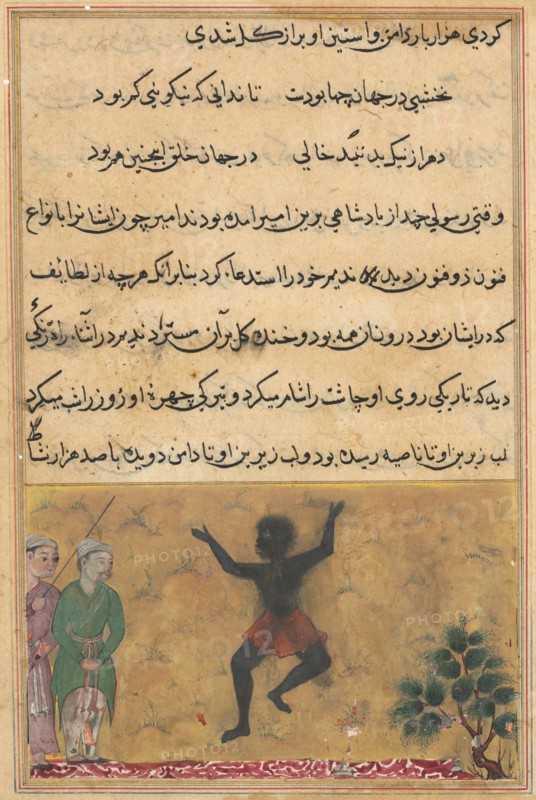 کردی هزار بار دامن و استین او پر از گل شدی
نخشبی در جهان چها بودست تا ندانی که نیکوئی کم بود
دهر از نیک بد نشد خالی در جهان خلق اینچنین هم بود
وقتی رسولی چند از بادشاهی برین امیر امده بودند امیر چون ایشانرا بانواع
فنون ذوفنون دید ندیم خود را استدعا کرد بنابرانکه هرچه از لطائف
که در ایشان بود درو نان همه بود و خنده گل بران مستزاد ندیم در اثناء راه زنگی
دید که تاریکی روی او چاشت را شام میکرد و تیرگی چهره او روز را شب میکرد
لب زبرین او تا ناصیه رسیده بود و لب زیرین او تا دامن دویده با صد هزار نشاط
PHOTO12
PHOTO12
PHOTO12
PHOTO12
PHOTO12